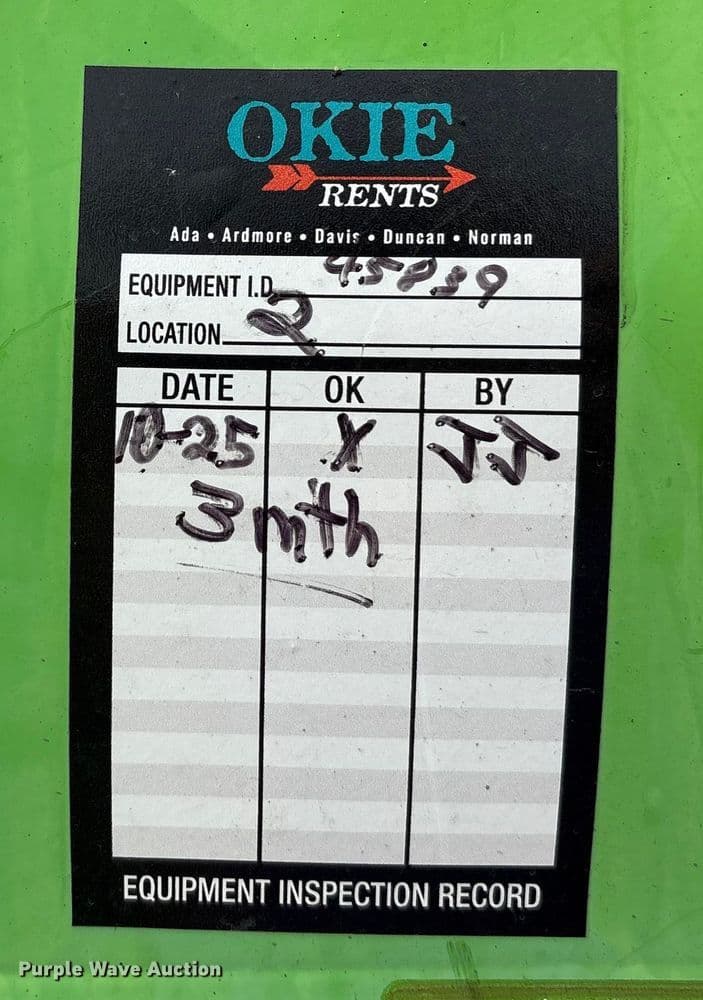 OKIE
RENTS
Ada • Ardmore • Davis • Duncan • Norman
EQUIPMENT I.D. 45839
LOCATION 2
DATE OK BY
10-25 X JJ
3 mth
EQUIPMENT INSPECTION RECORD
Purple Wave Auction